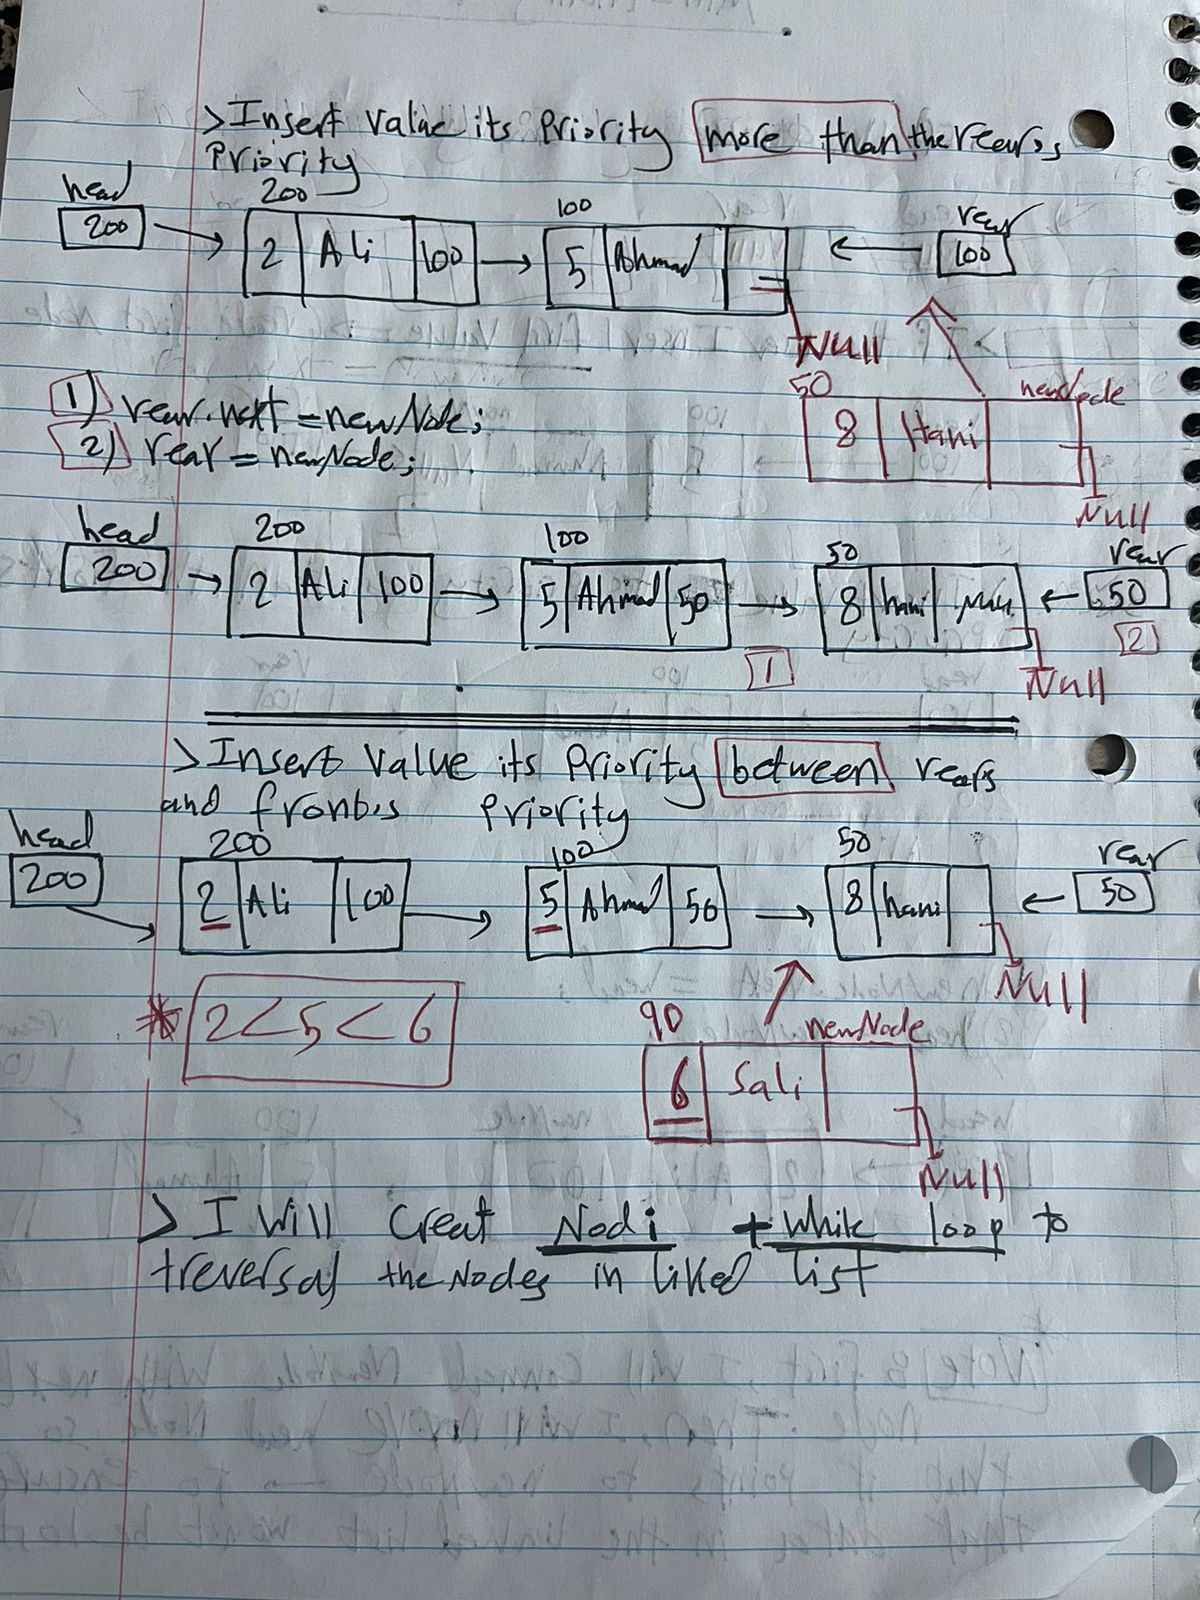 > Insert Value its Priority more than the rear's
Priority
head
200
200
2 Ali 100
100
5 Ahmad
rear
100
Null
1) rear.next = newNode;
2) rear = newNode;
50
newNode
8 Hani
Null
head
200
200
2 Ali 100
100
5 Ahmad 50
50
8 hani Null
rear
50
1
2
Null
> Insert Value its Priority between rear's
and front's priority
head
200
200
2 Ali 100
100
5 Ahmad 50
50
8 hani
rear
50
Null
* 2 < 5 < 6
90
newNode
6 Sali
Null
> I will Creat Nod i + while loop to
treversal the Nodes in liked list